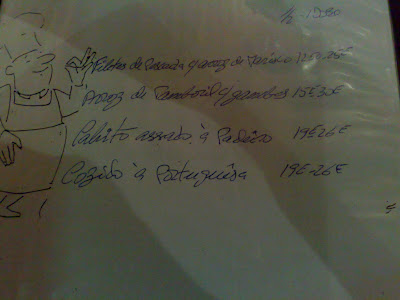 ½ - Dose
Filetes de Pescada c/arroz de Marisco 12E-25E
Arroz de Tamboril c/gambas 15E-30E
Cabrito assado à Padeiro 19E-26E
Cozido à Portuguêsa 19E-26E